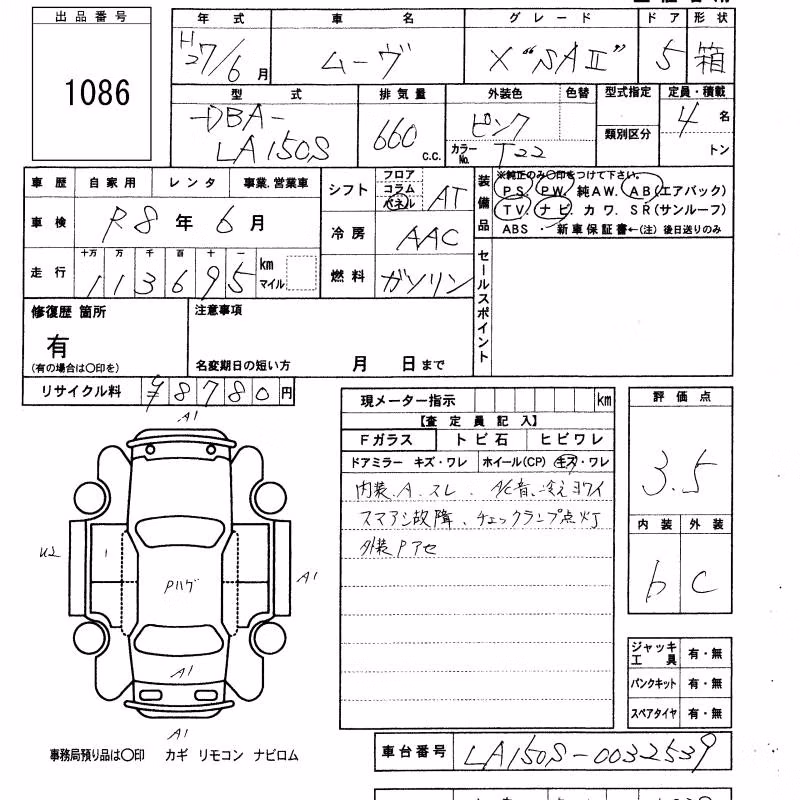 出品番号
1086
年式 車名 グレード ドア 形状
H27/6月 ムーヴ X "SAⅡ" 5 箱
型式 排気量 外装色 色替 型式指定 定員・積載
DBA-
LA150S 660 c.c. ピンク 4名
類別区分
カラーNo. T22 トン
車歴 自家用 レンタ 事業.営業車
車検 R8年6月
走行 十万 万 千 百 十 一
113695 km
マイル
シフト フロア
コラム
パネル AT
冷房 AAC
燃料 ガソリン
装備品
※純正のみ〇印をつけて下さい。
PS. PW. 純AW. AB(エアバック)
TV. ナビ. カワ. SR(サンルーフ)
ABS ・ 新車保証書←(注) 後日送りのみ
セールスポイント
修復歴 箇所
有
(有の場合は〇印を)
注意事項
名変期日の短い方 月 日まで
リサイクル料 ¥8780円
現メーター指示 km
【査定員記入】
Fガラス トビ石 ヒビワレ
ドアミラー キズ・ワレ ホイール(CP) キズ・ワレ
内装.A.スレ. A/C音.冷えヨワイ
スマアシ故障、チェックランプ点灯
外装Pアセ
評価点
3.5
内装 外装
b C
ジャッキ
工具 有・無
パンクキット 有・無
スペアタイヤ 有・無
A1
U2
Pハゲ
A1
A1
A1
事務局預り品は〇印 カギ リモコン ナビロム
車台番号 LA150S-0032539